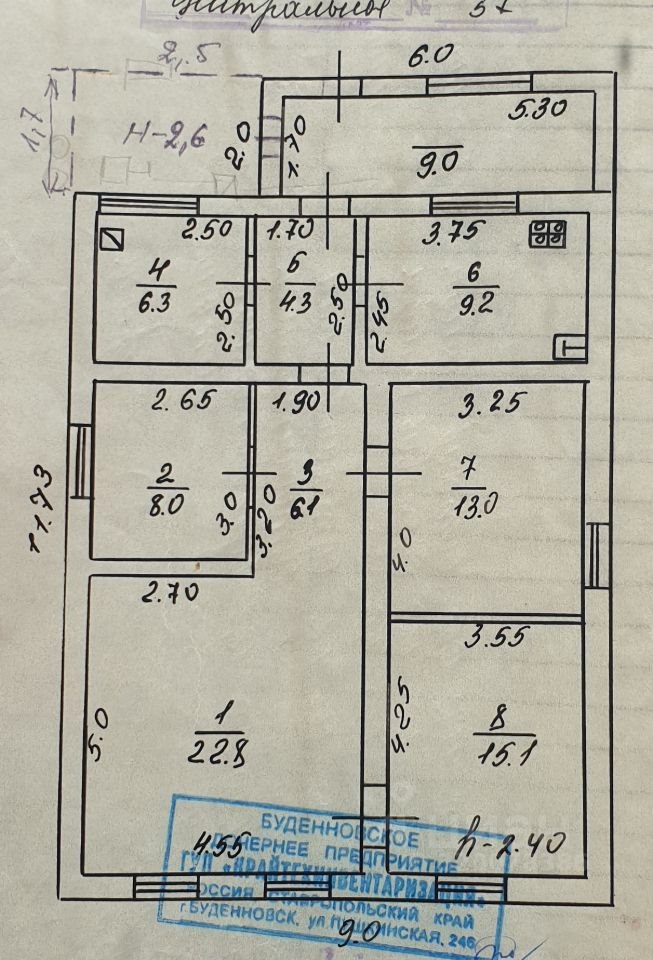 2,5
6.0
1,7
Н-2,6
2.0
1.70
5.30
9.0
2.50
1.70
3.75
4
6.3
5
4.3
6
9.2
2.50
2.50
2.45
2.65
1.90
3.25
2
8.0
3
6.1
7
13.0
3.0
3.20
4.0
11.73
2.70
3.55
5.0
1
22.8
4.25
8
15.1
4.55
h-2.40
БУДЕННОВСКОЕ
ДОЧЕРНЕЕ ПРЕДПРИЯТИЕ
ГУП «КРАЙТЕХИНВЕНТАРИЗАЦИЯ»
РОССИЯ СТАВРОПОЛЬСКИЙ КРАЙ
г.БУДЕННОВСК, ул.ПУШКИНСКАЯ, 246
9.0